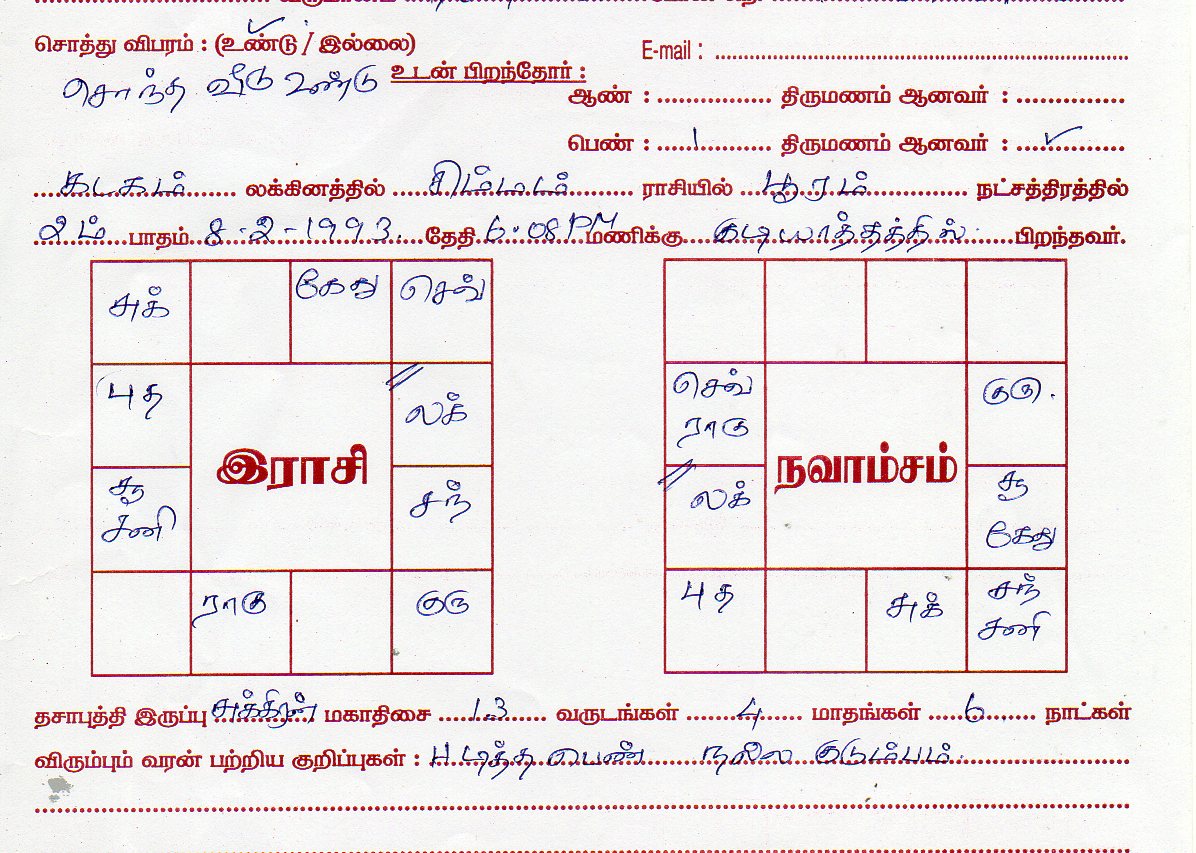 சொத்து விபரம் : (உண்டு / இல்லை)
E-mail :
சொந்த வீடு உண்டு
உடன் பிறந்தோர் :
ஆண் : திருமணம் ஆனவர் :
பெண் : 1 திருமணம் ஆனவர் : ✓
கடகம் லக்கினத்தில் சிம்மம் ராசியில் பூரம் நட்சத்திரத்தில்
2ம் பாதம் 8-2-1993 தேதி 6.08 PM மணிக்கு குடியாத்தத்தில் பிறந்தவர்.
சுக் கேது செவ்
புத லக்
இராசி
சூ சனி சந்
ராகு குரு
செவ் ராகு குரு.
நவாம்சம்
லக் சூ கேது
புத சுக் சந் சனி
தசாபுத்தி இருப்பு சுக்கிரன் மகாதிசை 13 வருடங்கள் 4 மாதங்கள் 6 நாட்கள்
விரும்பும் வரன் பற்றிய குறிப்புகள் : படித்த பெண் நல்ல குடும்பம்.